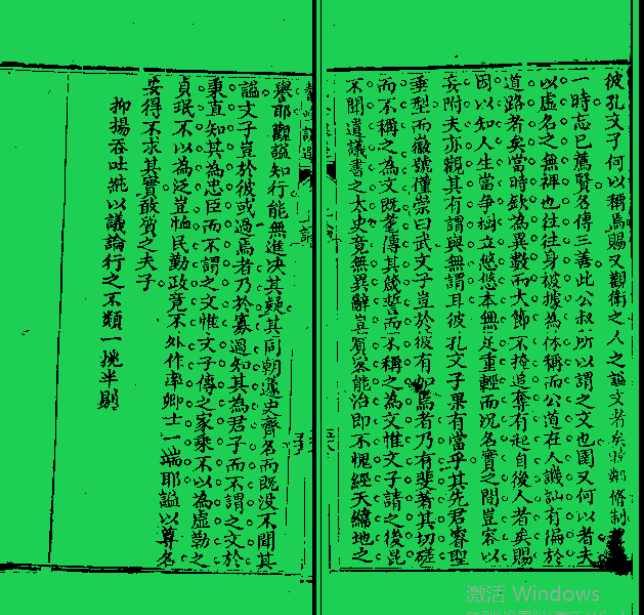 彼孔文子何以稱焉賜又觀衛之人之謚文者矣時鄰修制
一時志已薦賢名傳三善此公叔所以謂之文也圉又何以者夫
以虛名之無裨也往往身被據為休稱而公道在人譏訕有偏於
道路者矣當時欽為異數而大節不掩追奪有起自後人者矣賜
因以知人生當爭樹立悠悠本無足重輕而況名實之間豈容以
妄附夫亦觀其有謂與無謂耳彼孔文子果有當乎其先君睿聖
垂型而徽號僅崇曰武文子豈於彼有加焉者乃有斐著其切磋
而不稱之為文既耄傳其箴誓而不稱之為文惟文子請之後昆
不聞遺議書之太史竟無異辭豈賓客能治即不愧經天緯地之
譽耶觀謚知行能無進決其疑其同朝蘧史齊名而既沒不聞其
謚文子豈於彼或過焉者乃於寡過知其為君子而不謂之文於
秉直知其為忠臣而不謂之文惟文子傳之家乘不以為虛勤之
貞珉不以為泛豈恤民勤政竟不外作率卿士一端耶謚以尊名
安得不求其實敢質之夫子
抑揚吞吐能以議論行之不類一挑半剔
激活 Windows